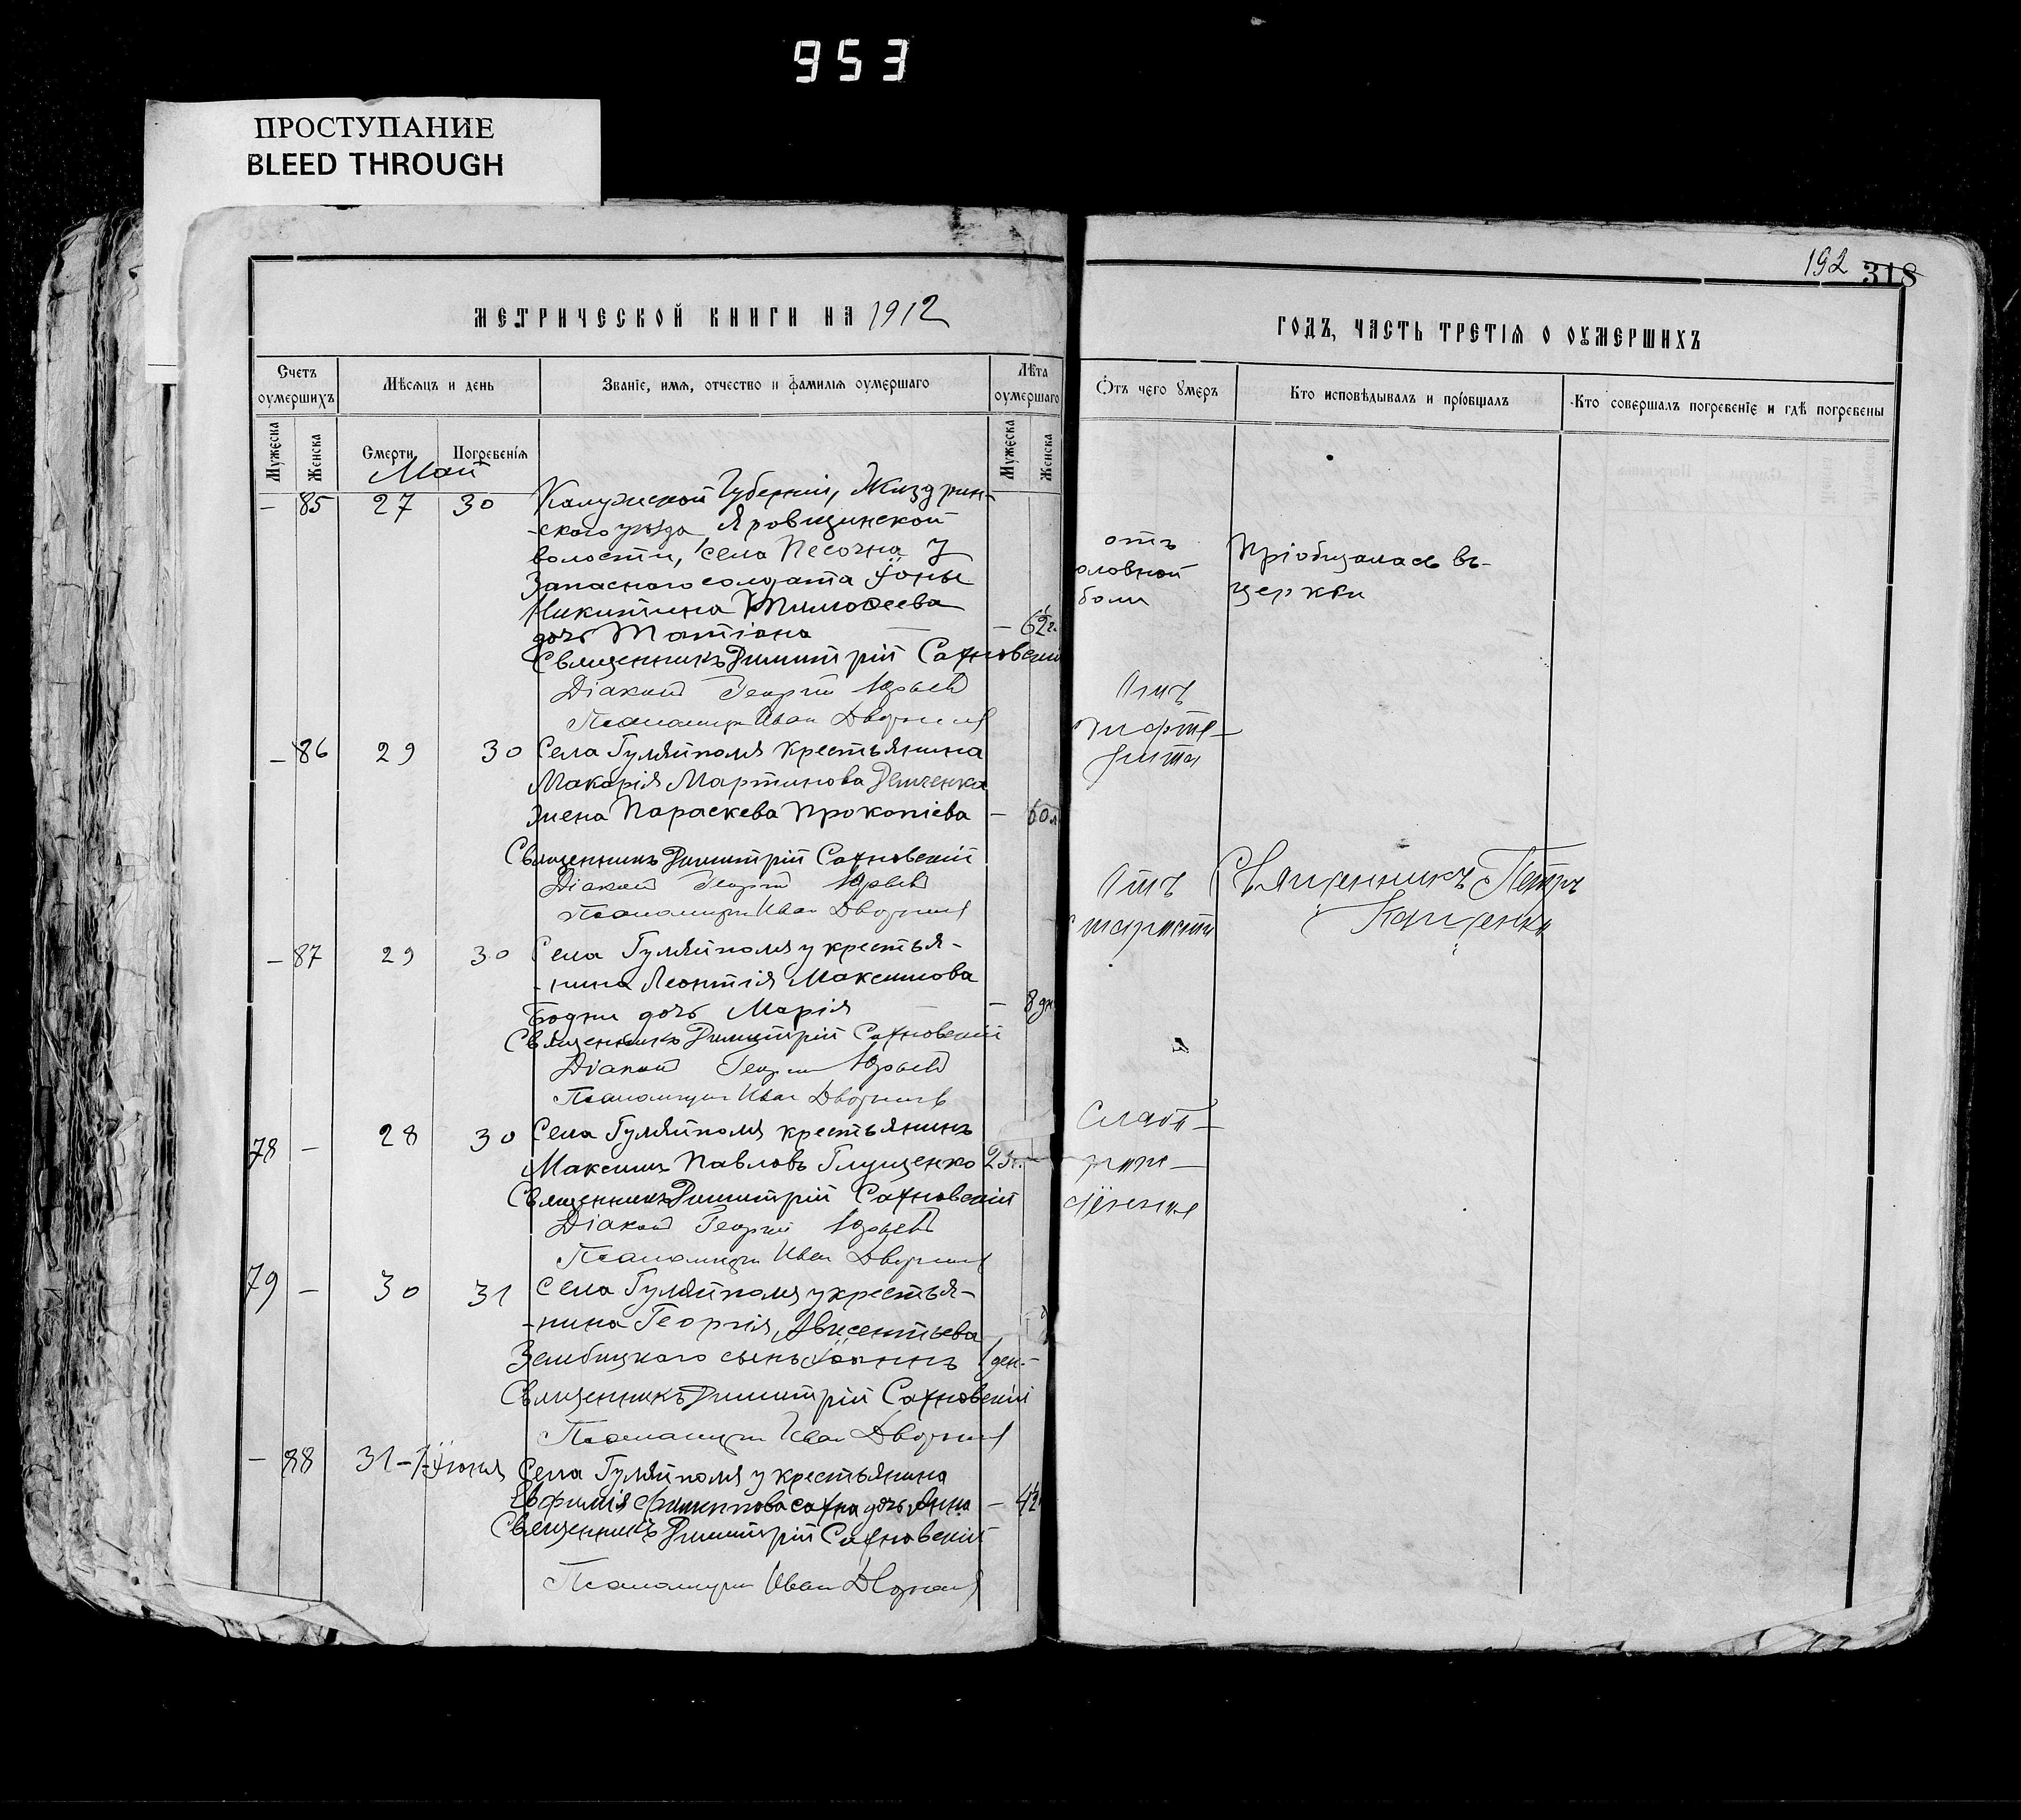 953
ПРОСТУПАНИЕ
BLEED THROUGH
192 318
МЕТРИЧЕСКОЙ КНИГИ НА 1912
ГОДЪ, ЧАСТЬ ТРЕТІѦ О ОУМЕРШИХЪ
Счетъ оумершихъ
Мѣсѧцъ и день
Званіе, имѧ, отчество и фамиліѧ оумершаго
Лѣта оумершаго
Ѿтъ чего оумеръ
Кто исповѣдывалъ и пріобщалъ
Кто совершалъ погребеніе и гдѣ погребены
Мужеска
Женска
Смерти
Погребеніѧ
Мужеска
Женска
Май
– 85 27 30 Калужской Губерніи, Жиздрин-
-скаго уѣзда, Яровщинской
волости, села Песочна у
Запасного солдата Іоны
Никитина Тимоѳеева
дочь Татіана –
Священникъ Димитрій Сахновскій
Діаконъ Георгій Юрьевъ
Псаломщикъ Иван Дворник
отъ
головной
боли
Пріобщалась въ
церкви
– 86 29 30 Села Гуляйполя крестьянина
Макарія Мартинова Демченка
жена Параскева Прокопіева – 60 л.
Священникъ Димитрій Сахновскій
Діаконъ Георгій Юрьевъ
Псаломщикъ Иван Дворник
Отъ
дифте-
рита
– 87 29 30 Села Гуляйполя у крестья-
-нина Леонтія Максимова
Бодни дочь Марія – 8 дн.
Священникъ Димитрій Сахновскій
Діаконъ Георгій Юрьевъ
Псаломщикъ Иван Дворник
Отъ
старости
Священникъ Петръ
78 – 28 30 Села Гуляйполя крестьянинъ
Максимъ Павловъ Глущенко
Священникъ Димитрій Сахновскій
Діаконъ Георгій Юрьевъ
Псаломщикъ Иван Дворник
79 – 30 31 Села Гуляйполя у крестья-
-нина Георгія Авксентьева
Зембицкаго сынъ Іоаннъ 1 ден. –
Священникъ Димитрій Сахновскій
Псаломщикъ Иван Дворник
Слабо-
рож-
– 88 31 – 1 Іюня Села Гуляйполя у крестьянина
Евфимія Филиппова Сахна дочь Анна –
Священникъ Димитрій Сахновскій
Псаломщикъ Иван Дворник